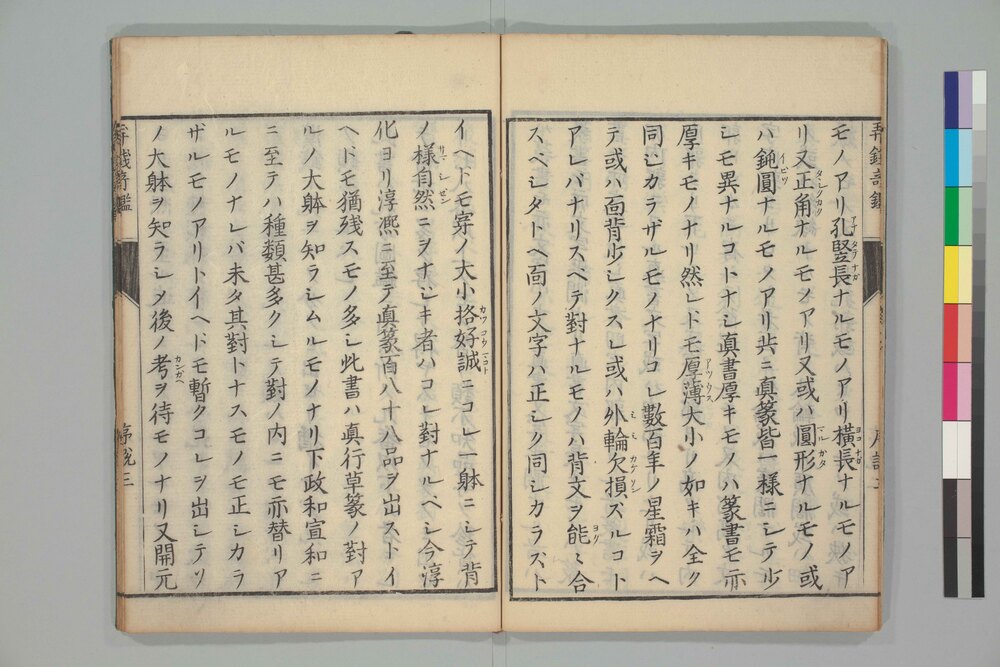 モノアリ孔竪長ナルモノアリ横長ナルモノア
リ又正角ナルモノアリ又或ハ圓形ナルモノ或
ハ鈍圓ナルモノアリ共ニ真篆皆一様ニシテ少
シモ異ナルコトナシ真書厚キモノハ篆書モ亦
厚キモノナリ然レドモ厚薄大小ノ如キハ全ク
同シカラザルモノナリコレ數百年ノ星霜ヲヘ
テ或ハ面背少シクスレ或ハ外輪欠損ズルコト
アレバナリスベテ對ナルモノハ背文ヲ能〻合
スベシタトヘ面ノ文字ハ正シク同シカラズト
イヘドモ穿ノ大小挌好誠ニコレ一躰ニシテ背
ノ様自然ニヲナジキ者ハコレ對ナルベシ今淳
化ヨリ淳熈ニ至テ真篆百八十八品ヲ出ストイ
ヘドモ猶残スモノ多シ此書ハ真行草篆ノ對ア
ルノ大躰ヲ知ラシムルモノナリ下政和宣和ニ
ニ至テハ種類甚多クシテ對ノ内ニモ亦替リア
ルモノナレバ未タ其對トナスモノモ正シカラ
ザルモノアリトイヘドモ暫クコレヲ出シテソ
ノ大躰ヲ知ラシメ後ノ考ヲ待モノナリ又開元
序説三